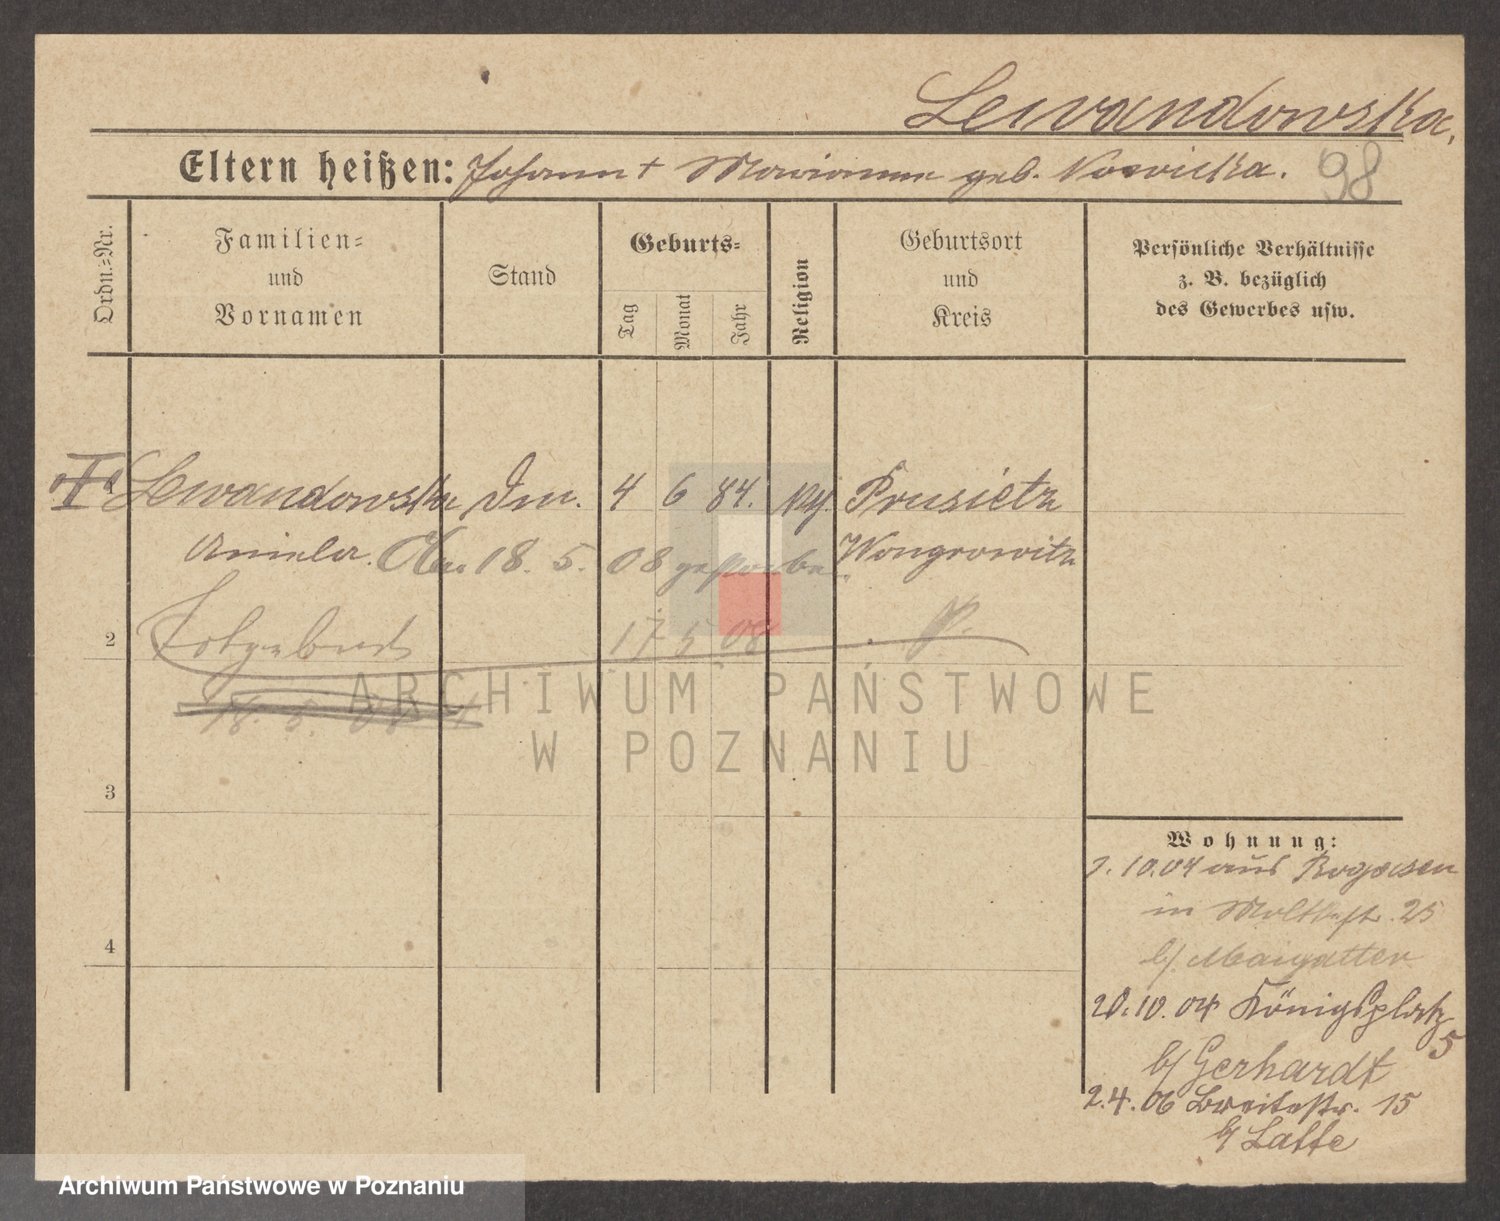 Lewandowska.
Eltern heißen: Johann + Marianna geb. Nowicka. 98
Ordn.-Nr.
Familien-
und
Vornamen
Stand
Geburts-
Tag
Monat
Jahr
Religion
Geburtsort
und
Kreis
Persönliche Verhältnisse
z. B. bezüglich
des Gewerbes usw.
Lewandowska 4 6 84. Prusietz
Aniela. 18. 5. 08 gestorben. Wongrowitz
2 Totgeburt 17 5 08
18. 5. 08
ARCHIWUM PAŃSTWOWE
W POZNANIU
3
4
Wohnung:
1.10.04 aus Rogasen
in Moltkestr. 25
b/
20.10.04 Königsplatz
5
b/ Gerhardt
2.4.06 Breitestr. 15
b/ Latte
Archiwum Państwowe w Poznaniu